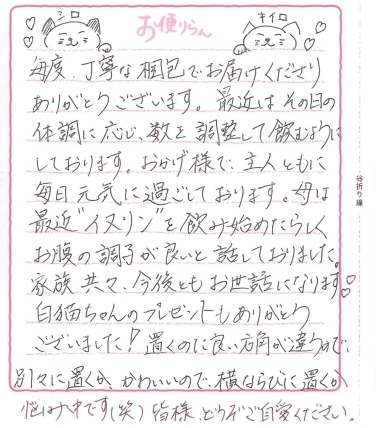 シロ
お便りらん
キイロ
毎度、丁寧な梱包でお届けくださり
ありがとうございます。最近はその日の
体調に応じ、数を調整して飲むように
しております。おかげ様で、主人ともに
毎日元気に過ごしております。母は
最近"イヌリン"を飲み始めたらしく
お腹の調子が良いと話しておりました。
家族共々、今後ともお世話になります。
白猫ちゃんのプレゼントもありがとう
ございました!置くのに良い方角が違うので、
別々に置くか、かわいいので、横ならびに置くか
悩み中です(笑)皆様、どうぞご自愛ください。
谷折り線